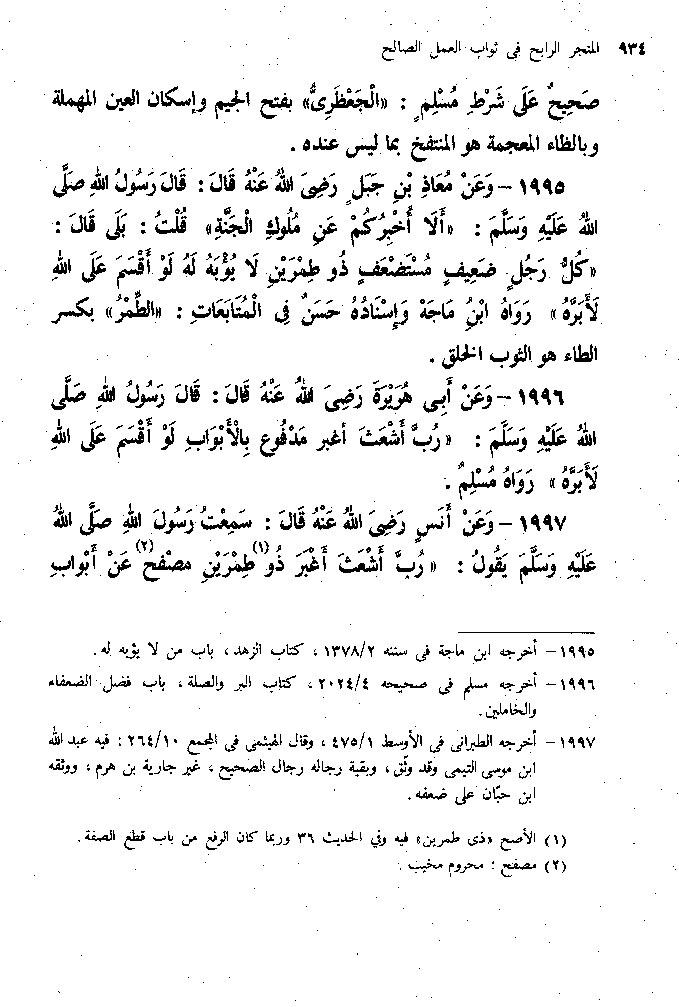 ٩٣٤ المتجر الرابح فى ثواب العمل الصالح
صَحِيحٌ عَلَى شَرْطِ مُسْلِمٍ : «الْجَعْظَرِىُّ» بفتح الجيم وإسكان العين المهملة
وبالظاء المعجمة هو المنتفخ بما ليس عنده .
١٩٩٥ – وَعَنْ مُعَاذِ بْنِ جَبَلٍ رَضِىَ اللهُ عَنْهُ قَالَ : قَالَ رَسُولُ اللهِ صَلَّى
اللهُ عَلَيْهِ وَسَلَّمَ : «أَلَا أُخْبِرُكُمْ عَنِ مُلُوكِ الْجَنَّةِ» قُلْتُ : بَلَى قَالَ :
«كُلُّ رَجُلٍ ضَعِيفٍ مُسْتَضْعَفٍ ذُو طِمْرَيْنِ لَا يُؤْبَهُ لَهُ لَوْ أَقْسَمَ عَلَى اللهِ
لَأَبَرَّهُ» رَوَاهُ ابْنُ مَاجَهْ وَإِسْنَادُهُ حَسَنٌ فِى الْمُتَابَعَاتِ : «الطِّمْرُ» بكسر
الطاء هو الثوب الخلق .
١٩٩٦ – وَعَنْ أَبِى هُرَيْرَةَ رَضِىَ اللهُ عَنْهُ قَالَ : قَالَ رَسُولُ اللهِ صَلَّى
اللهُ عَلَيْهِ وَسَلَّمَ : «رُبَّ أَشْعَثَ أغبر مَدْفُوعٍ بِالْأَبْوَابِ لَوْ أَقْسَمَ عَلَى اللهِ
لَأَبَرَّهُ» رَوَاهُ مُسْلِمٌ .
١٩٩٧ – وَعَنْ أَنَسٍ رَضِىَ اللهُ عَنْهُ قَالَ : سَمِعْتُ رَسُولَ اللهِ صَلَّى اللهُ
عَلَيْهِ وَسَلَّمَ يَقُولُ : «رُبَّ أَشْعَثَ أَغْبَرَ ذُو(١) طِمْرَيْنِ مصْفح(٢) عَنْ أَبْوابِ
١٩٩٥ – أخرجه ابن ماجة فى سننه ١٣٧٨/٢ ، كتاب الزهد ، باب من لا يؤبه له .
١٩٩٦ – أخرجه مسلم فى صحيحه ٢٠٢٤/٤ ، كتاب البر والصلة ، باب فضل الضعفاء
والخاملين .
١٩٩٧ – أخرجه الطبرانى فى الأوسط ٤٧٥/١ ، وقال الهيثمى فى المجمع ٢٦٤/١٠ : فيه عبد الله
ابن موسى التيمى وقد وثّق ، وبقية رجاله رجال الصحيح ، غير جارية بن هرم ، ووثقه
ابن حبّان على ضعفه .
(١) الأصح «ذى طمرين» فيه وفي الحديث ٣٦ وربما كان الرفع من باب قطع الصفة .
(٢) مصفح : محروم مخيب .